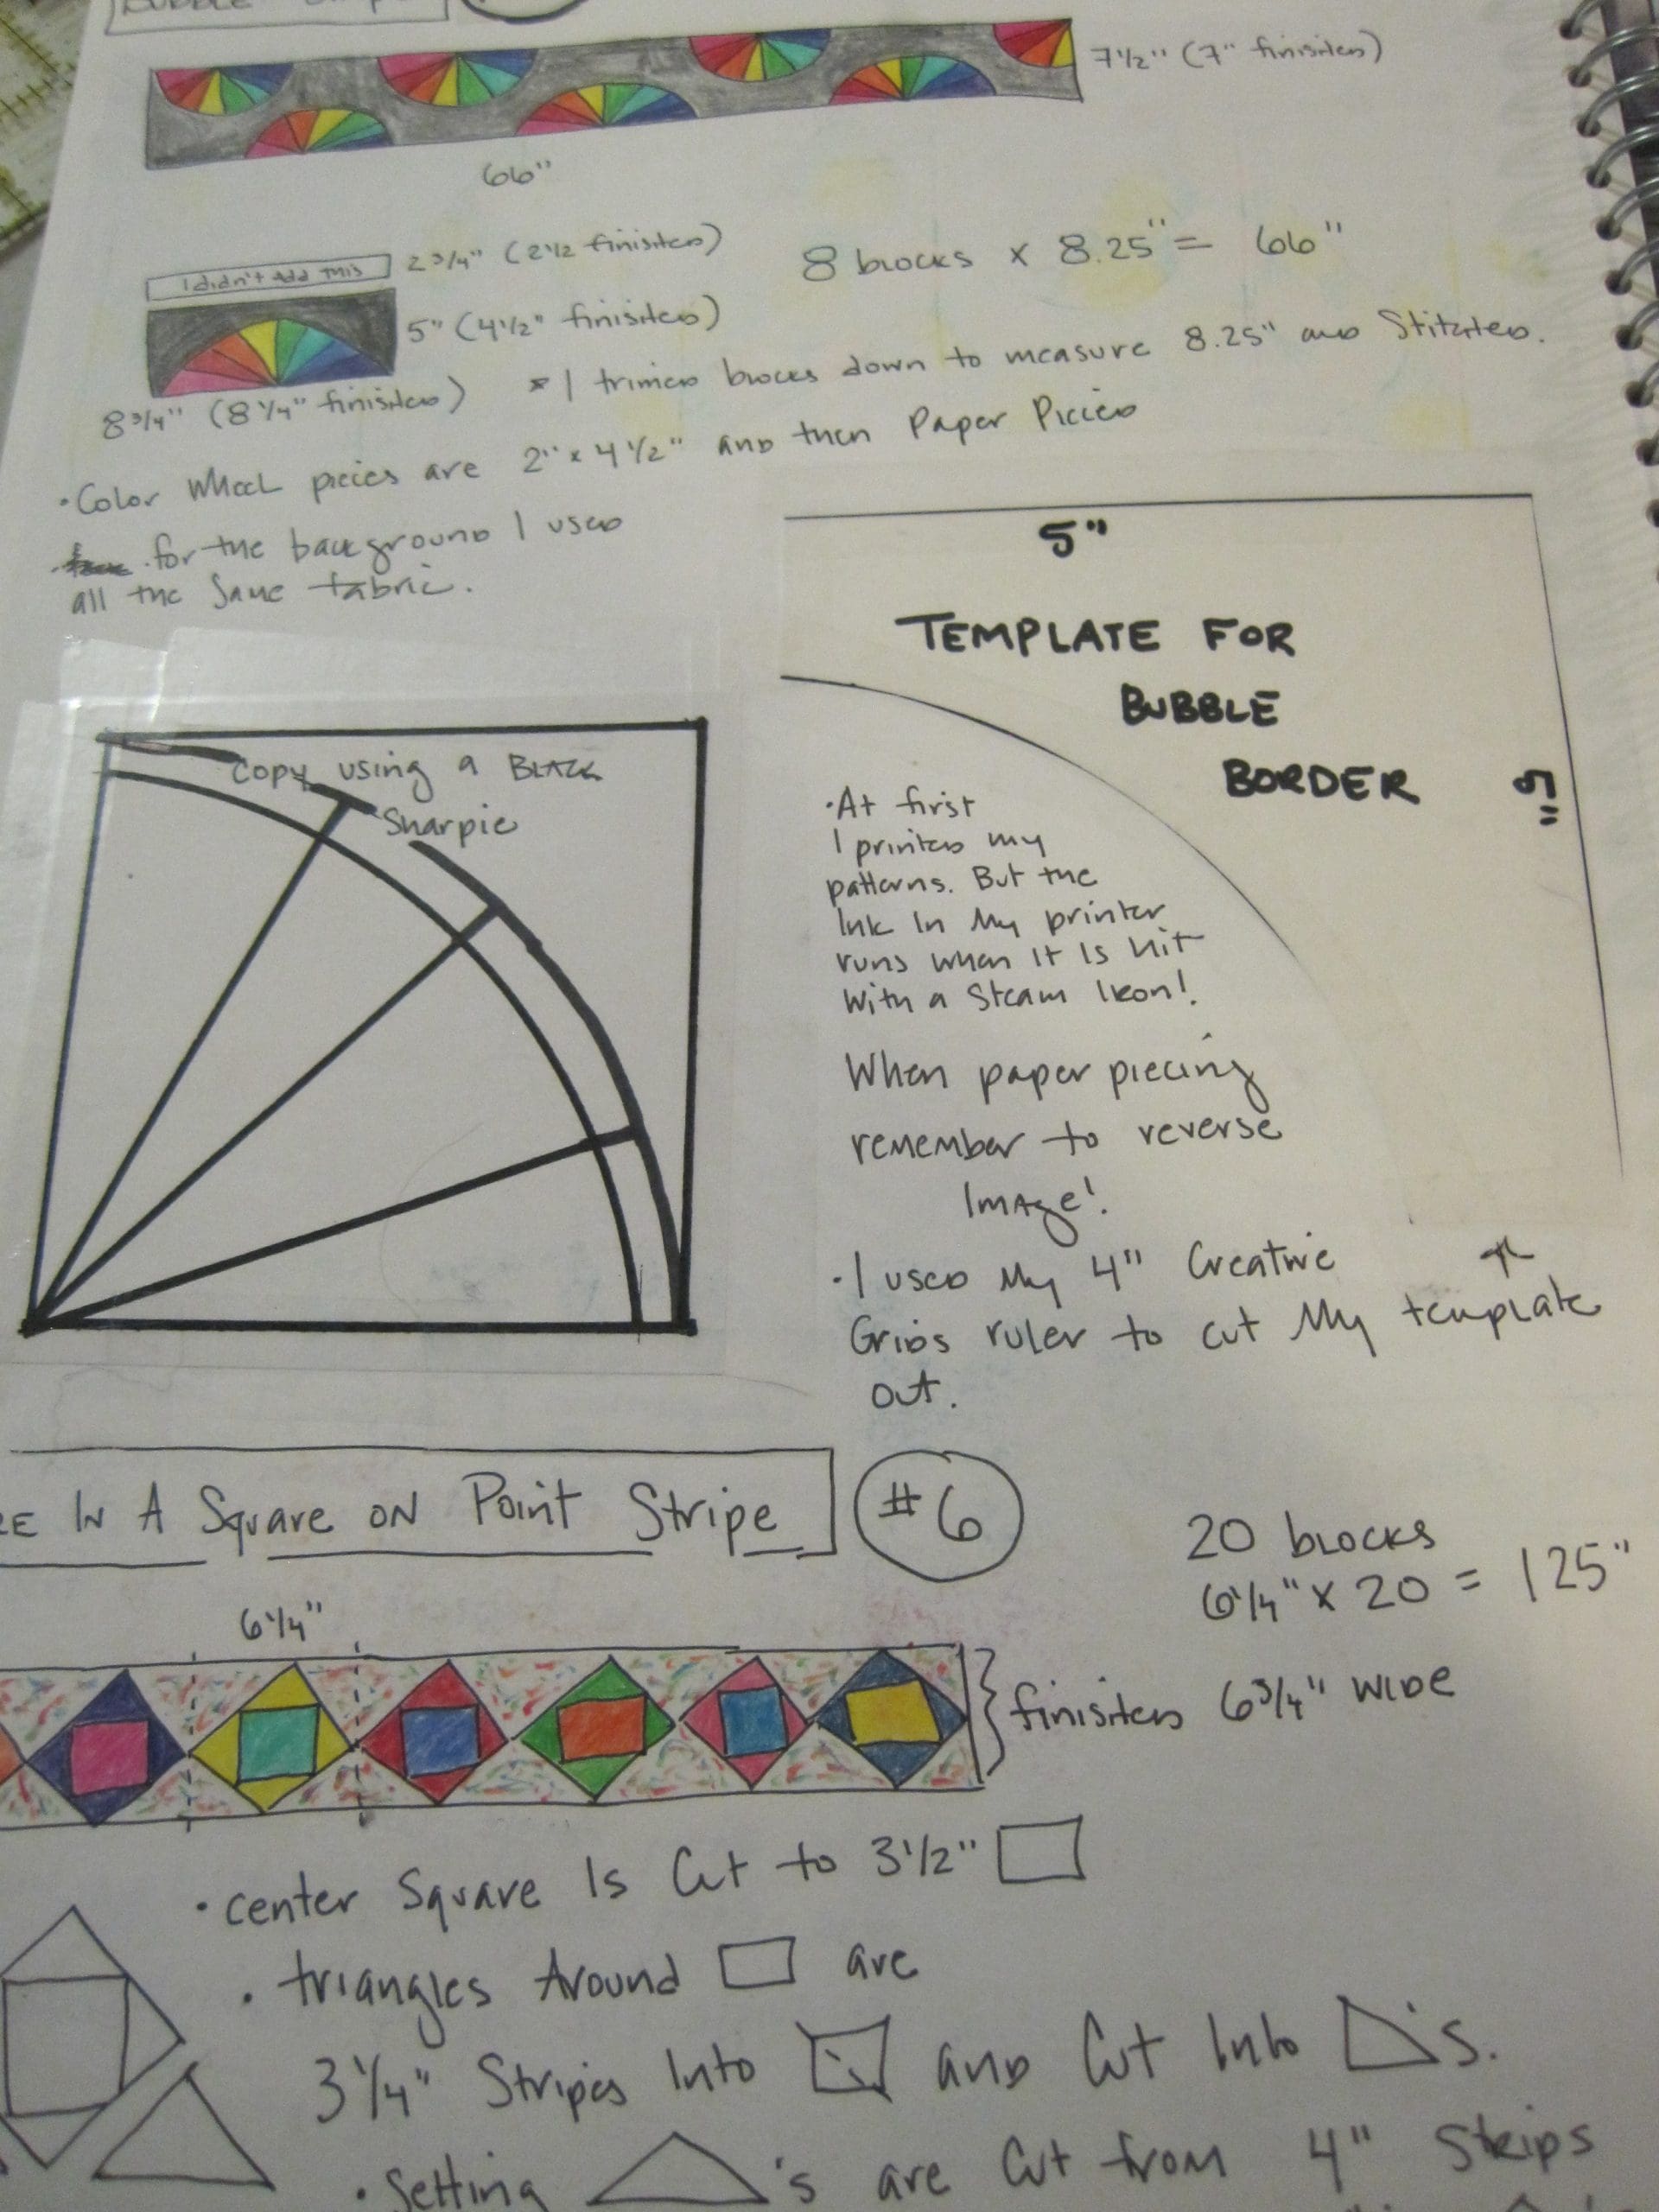 7 1/2" (7" finishes)
66"
I didn't Add This
2 3/4" (2 1/2 finishes)
8 blocks x 8.25" = 66"
5" (4 1/2" finishes)
8 3/4" (8 1/4" finishes)
* I trimed blocks down to measure 8.25" and Stitched.
• Color Wheel pieces are 2" x 4 1/2" and then Paper Pieced
• for the background I used
all the Same fabric.
5"
TEMPLATE FOR
BUBBLE
BORDER
5"
Copy using a BLACK
Sharpie
• At first
I printed my
patterns. But the
Ink In My printer
runs when It Is hit
With a Steam Iron!
When paper piecing
remember to reverse
Image!
• I used My 4" Creative
Grids ruler to cut My template
out.
In A Square on Point Stripe
#6
20 blocks
6 1/4" x 20 = 125"
6 1/4"
finishes 6 3/4" WIDE
• center Square Is Cut to 3 1/2"
• triangles Around are
3 1/4" Stripes Into and Cut Into 's.
• Setting 's are Cut from 4" Strips